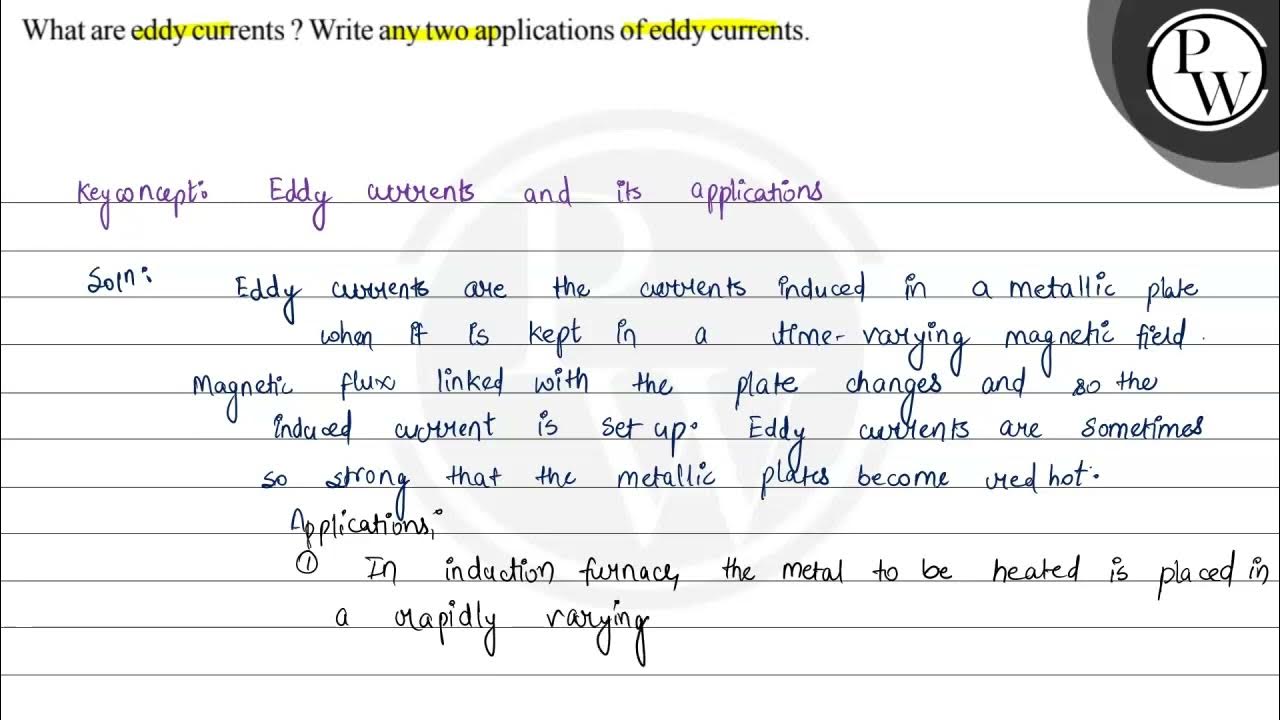 What are eddy currents ? Write any two applications of eddy currents.
PW
Keyconcept: Eddy currents and its applications
Soln: Eddy currents are the currents induced in a metallic plate
when it is kept in a time-varying magnetic field.
Magnetic flux linked with the plate changes and so the
induced current is set up. Eddy currents are sometimes
so strong that the metallic plates become red hot.
Applications;
① In induction furnace, the metal to be heated is placed in
a rapidly varying